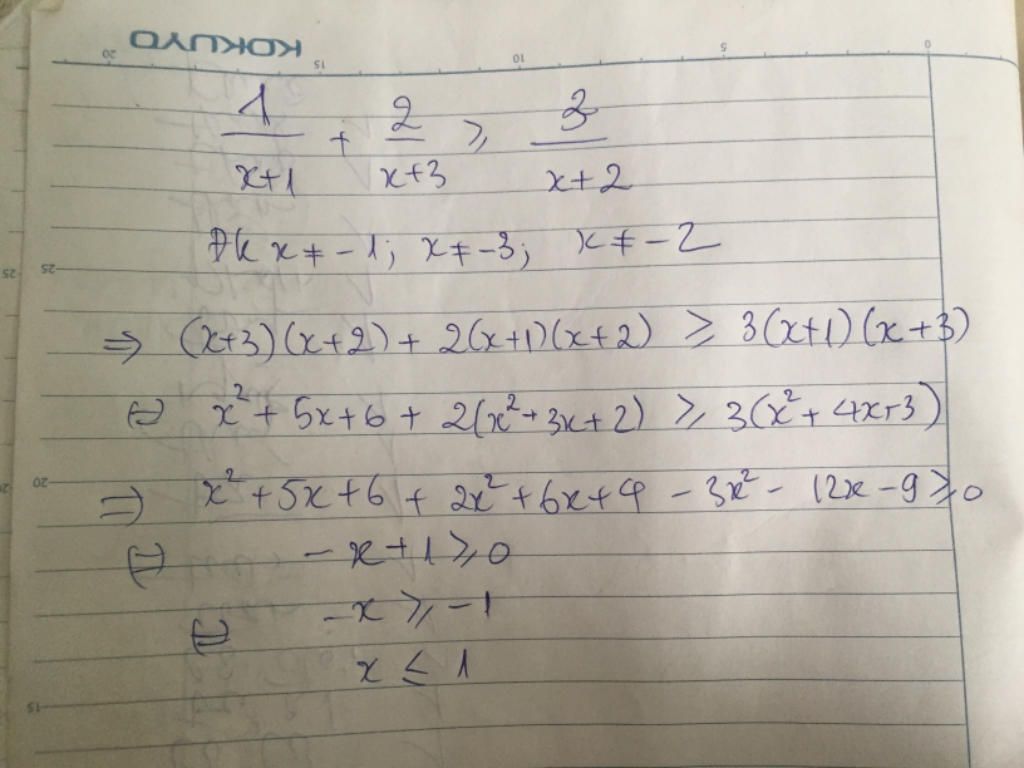 KOKUYO
20 15 10 5 0
1/(x+1) + 2/(x+3) ≥ 3/(x+2)
ĐK x ≠ -1; x ≠ -3; x ≠ -2
25 25
⇒ (x+3)(x+2) + 2(x+1)(x+2) ≥ 3(x+1)(x+3)
⇔ x² + 5x + 6 + 2(x² + 3x + 2) ≥ 3(x² + 4x + 3)
20
⇒ x² + 5x + 6 + 2x² + 6x + 4 - 3x² - 12x - 9 ≥ 0
⇔ -x + 1 ≥ 0
⇔ -x ≥ -1
x ≤ 1
15